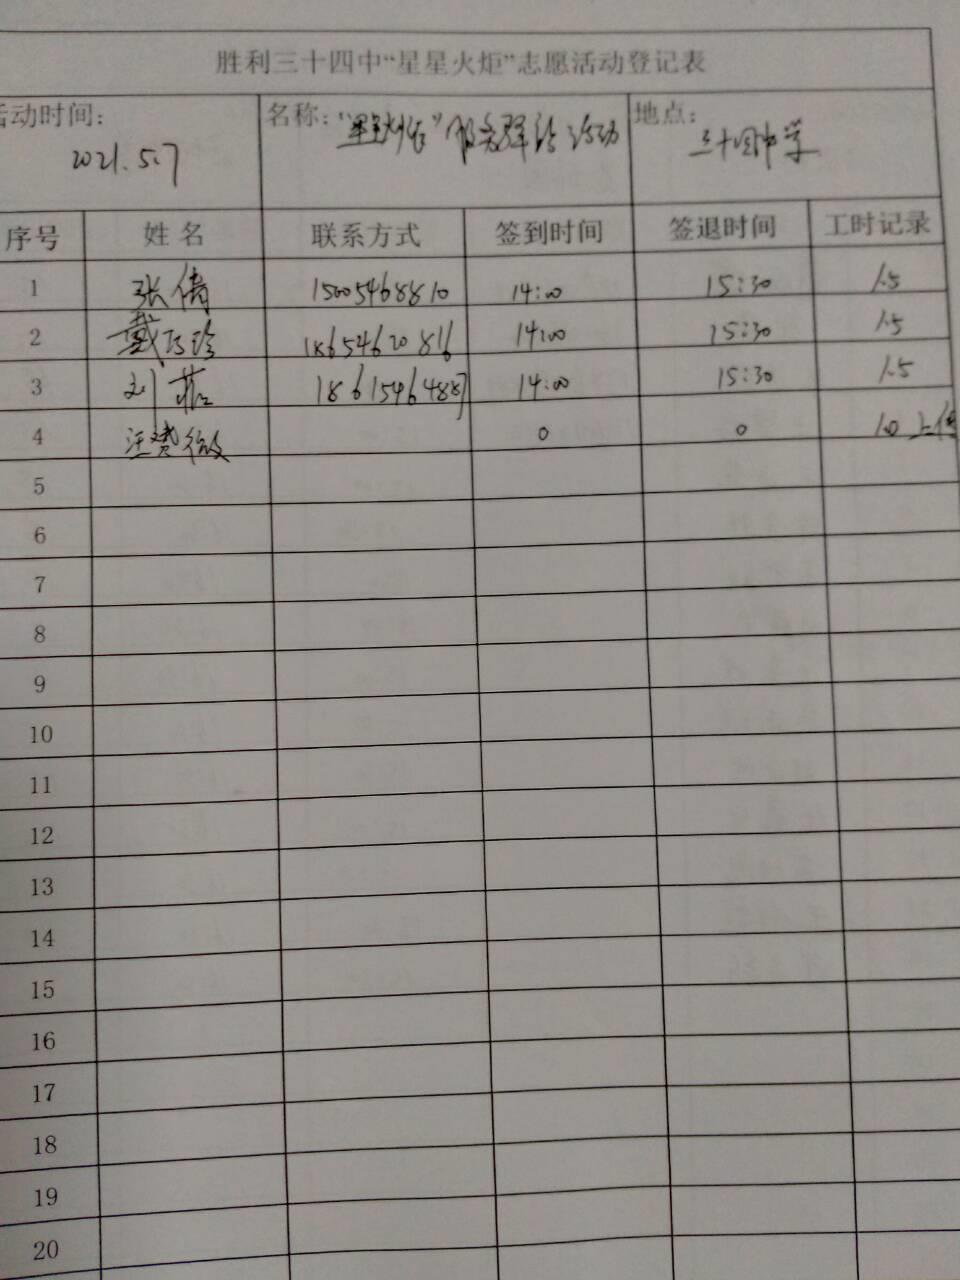 胜利三十四中“星星火炬”志愿活动登记表
活动时间: 名称: 地点:
2021.5.7 “星星火炬”服务 活动 三十四中学
序号 姓名 联系方式 签到时间 签退时间 工时记录
1 张倩 15005468810 14:00 15:30 1.5
2 戴 珍 18654620816 14:00 15:30 1.5
3 刘 18615464887 14:00 15:30 1.5
4 0 0 1.0 上传
5
6
7
8
9
10
11
12
13
14
15
16
17
18
19
20